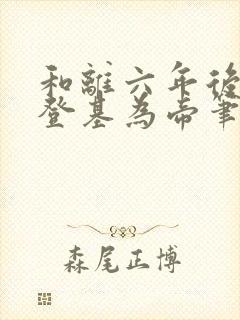 和離六年後
登基為帝筆
森尾正博